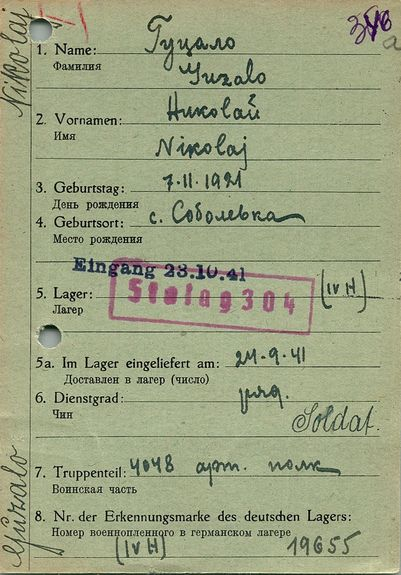 Nikolaj
1. Name: Гуцало
Фамилия
Guzalo
2. Vornamen: Николай
Имя
Nikolaj
3. Geburtstag: 7.11.1921
День рождения
4. Geburtsort: с. Соболевка
Место рождения
Eingang 23.10.41
5. Lager: Stalag 304 (IV H)
Лагер
5a. Im Lager eingeliefert am: 24-9-41
Доставлен в лагер (число)
6. Dienstgrad: ряд.
Чин
Soldat.
Guzalo
7. Truppenteil: 4048 арт. полк
Воинская часть
8. Nr. der Erkennungsmarke des deutschen Lagers:
Номер военнопленного в германском лагере
(IV H) 19655